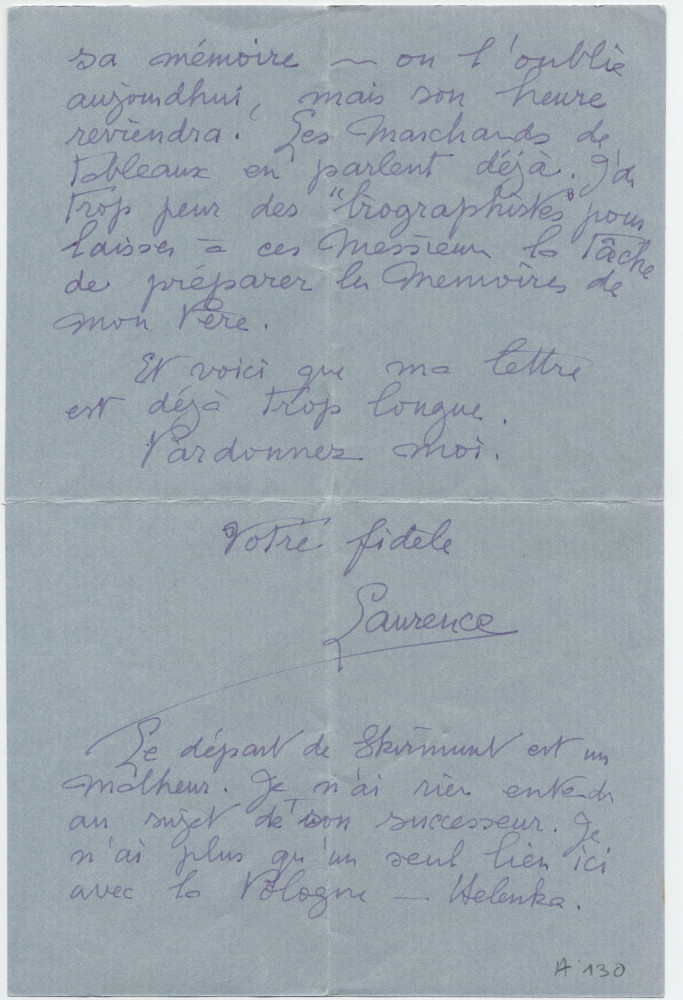 sa mémoire — on l'oublie
aujourdhui, mais son heure
reviendra. Les Marchands de
Tableaux en parlent déjà. J'ai
Trop peur des "biographistes" pour
laisser à ces Messieurs la Tâche
de préparer les Memoires de
mon Père.
Et voici que ma lettre
est déjà Trop longue.
Pardonnez moi.
Votre fidèle
Laurence
Le départ de Skirmunt est un
malheur. Je n'ai rien entendu
au sujet de son successeur. Je
n'ai plus qu'un seul lien ici
avec la Pologne — Helenka.
A 130